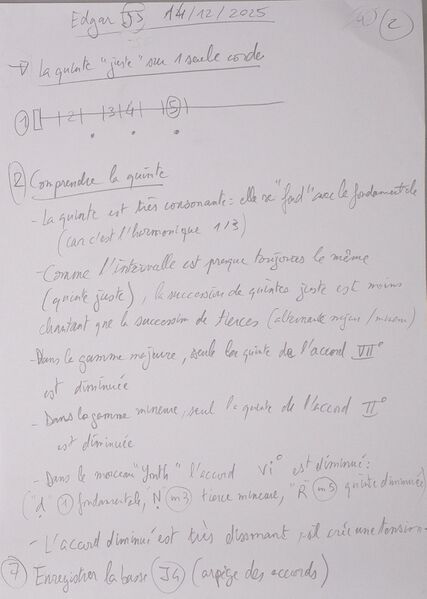 Edgar J3 14/12/2025 2
→ La quinte "juste" sur 1 seule corde
1 2 3 4 5
2 Comprendre la quinte
- La quinte est très consonante : elle se "fond" avec la fondamentale
(car c'est l'harmonique 1/3)
- Comme l'intervalle est presque toujours le même
(quinte juste), la succession de quintes juste est moins
chantant que la succession de tierces (alternante majeur / mineure)
- Dans la gamme majeure, seule la quinte de l'accord VII°
est diminuée
- Dans la gamme mineure, seul la quinte de l'accord II°
est diminuée
- Dans le morceau "Youth" l'accord vi° est diminué :
1 fondamentale, N m3 tierce mineure, "R" m5 quinte diminuée)
- L'accord diminué est très dissonant, il crée une tension.
7 Enregistrer la basse J4 (arpège des accords)